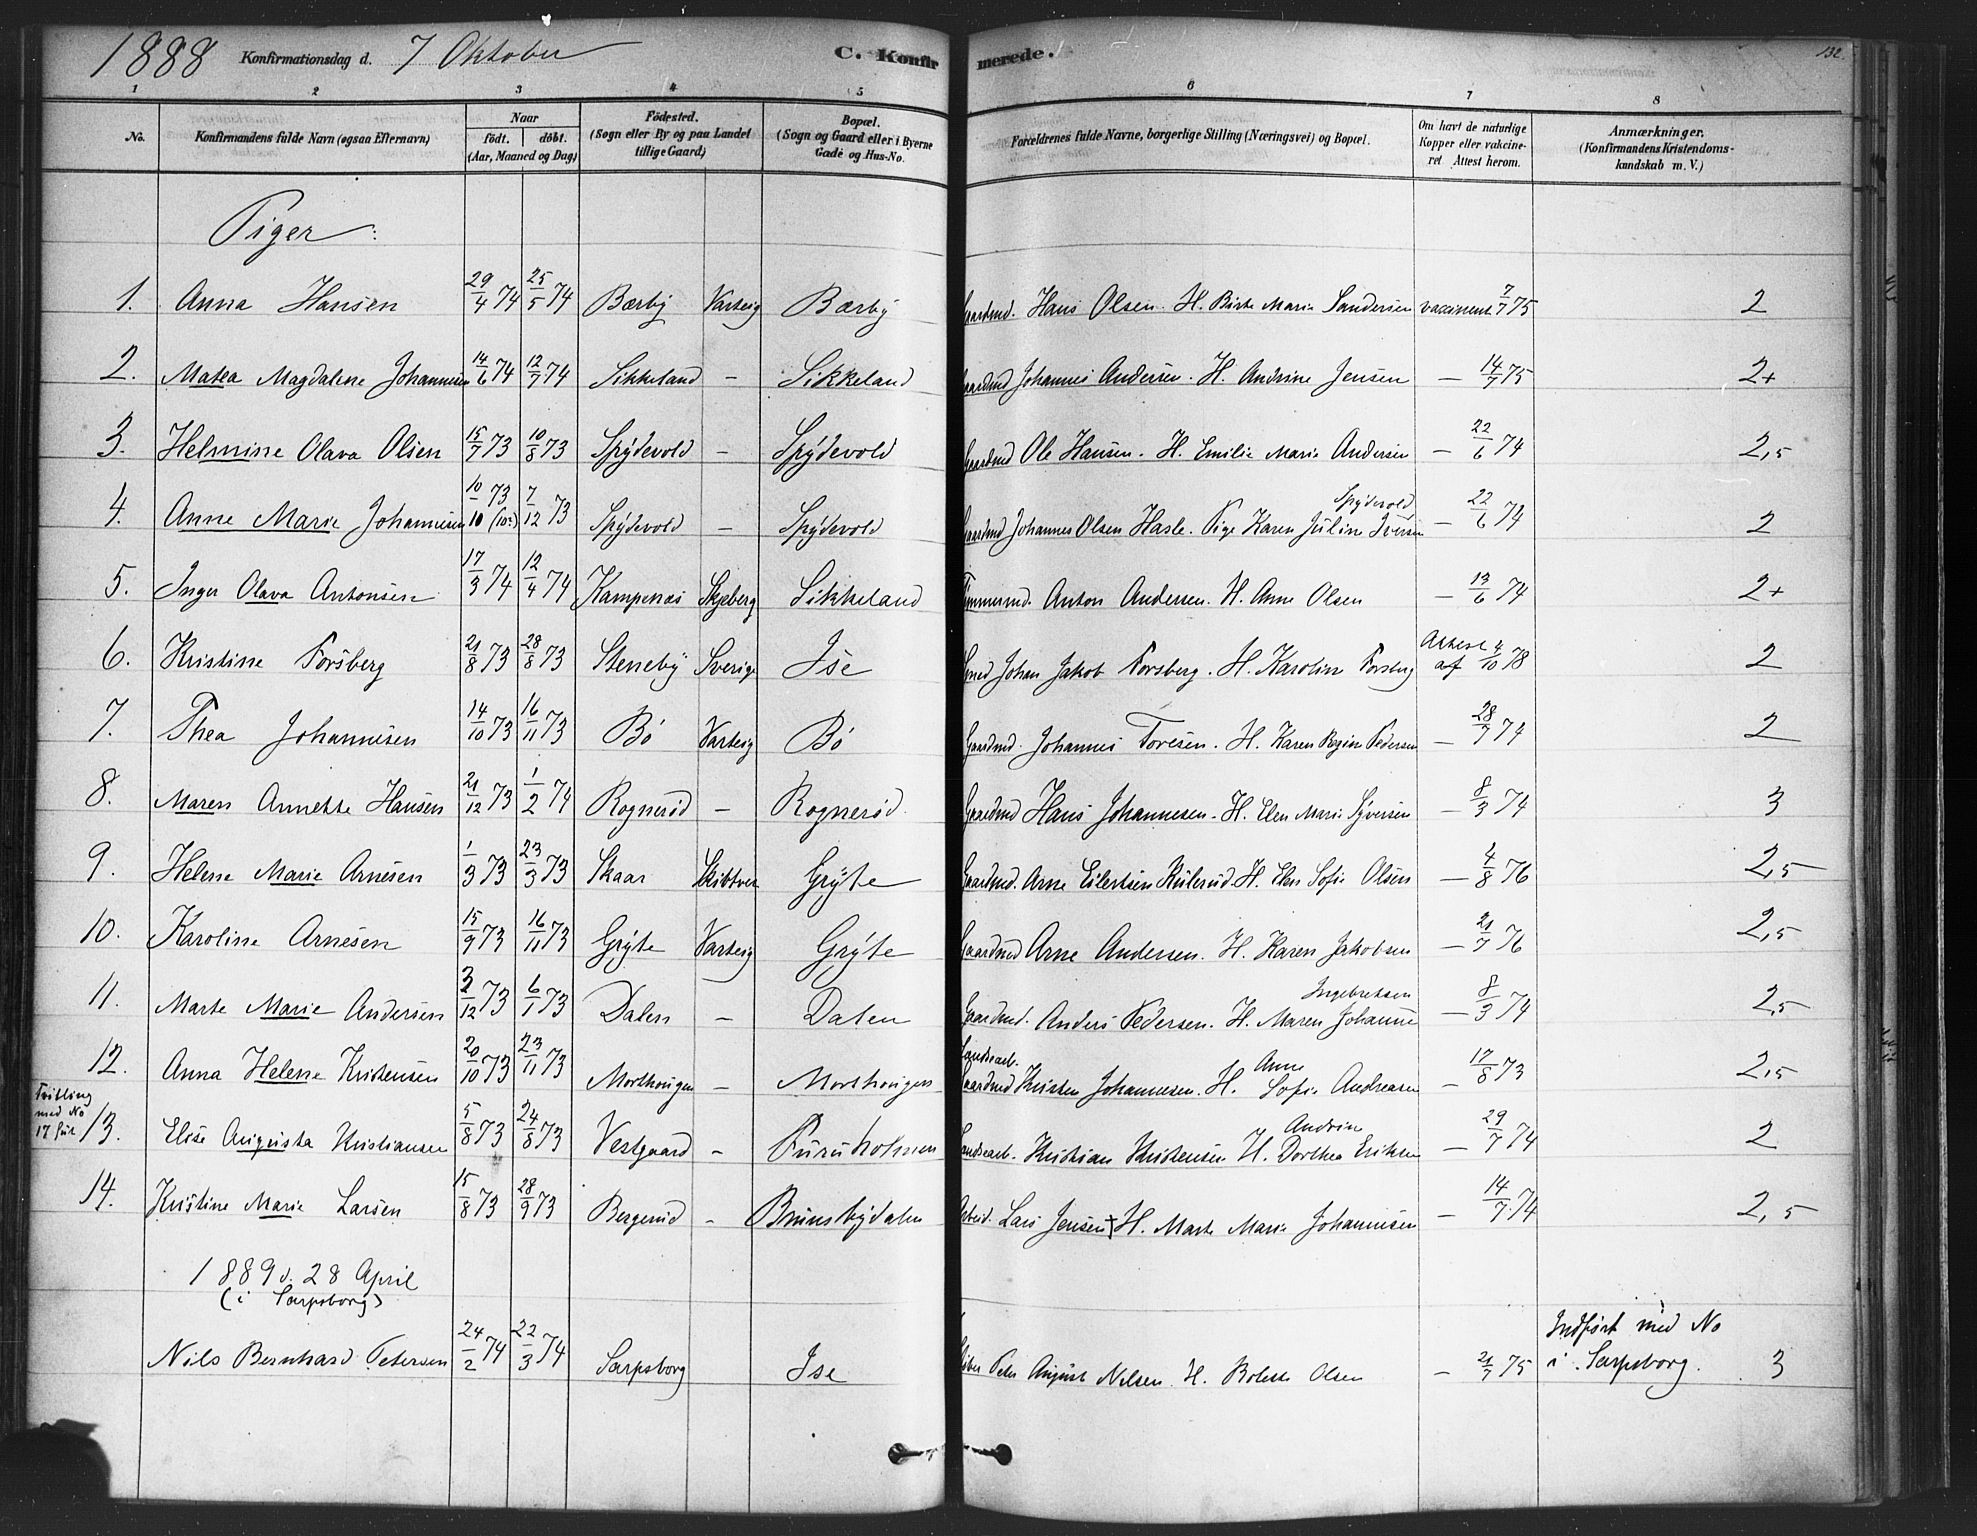 1888 Konfirmationsdag d. 7 Oktober C. Konfirmerede. 132.
1 2 3 4 5 6 7 8
No. Konfirmandens fulde Navn (ogsaa Efternavn) Naar født. døbt. (Aar, Maaned og Dag) Fødested. (Sogn eller By og paa Landet tillige Gaard) Bopæl. (Sogn og Gaard eller i Byerne Gade og Hus-No. Forældrenes fulde Navne, borgerlige Stilling (Næringsvei) og Bopæl. Om havt de naturlige Kopper eller vakcineret Attest herom. Anmærkninger. (Konfirmandens Kristendomskundskab m. V.)
Piger:
1. Anna Hansen 29/4 74 25/5 74 Bærby Varteig Bærby Gaardmd. Hans Olsen. H. Birte Marie Sandersen vaccineret 7/7 75 2
2. Matea Magdalene Johannesen 14/6 74 12/7 74 Sikkeland – Sikkeland Gaardmd Johannes Andersen. H. Andrine Jensen – 14/7 75 2+
3. Helmine Olava Olsen 15/7 73 10/8 73 Spydevold – Spydevold Gaardmd Ole Hansen. H. Emilie Marie Andersen – 22/6 74 2,5
4. Anne Marie Johannesen 10/10 73 7/12 73 Spydevold – Spydevold Gaardmd Johannes Olsen Hasle. Pige Karen Juline Iversen Spydevold – 22/6 74 2
5. Inger Olava Antonsen 17/3 74 12/4 74 Kampenæs Skjeberg Sikkeland Tømmermd. Anton Andersen. H. Anne Olsen – 13/6 74 2+
6. Kristine Forsberg 21/8 73 28/8 73 Steneby Sverige Ise Smed Johan Jakob Forsberg. H. Karoline Forsberg Attest af 4/10 78 2
7. Thea Johannesen 14/10 73 16/11 73 Bø Varteig Bø Gaardmd. Johannes Toresen. H. Karen Regine Pedersen – 28/7 74 2
8. Maren Annette Hansen 21/12 73 1/2 74 Rognerød – Rognerød. Gaardmd Hans Johannesen. H. Elen Marie Syversen – 8/3 74 3
9. Helene Marie Arnesen 1/3 73 23/3 73 Skaar Skibtvet Gryte Gaardmd. Arne Eilertsen Kulerud. H. Elen Sofie Olsen – 4/8 76 2,5
10. Karoline Arnesen 15/9 73 16/11 73 Gryte Varteig Gryte Gaardmd Arne Andersen. H. Karen Jakobsen – 21/7 76 2,5
11. Marte Marie Andersen 3/12 73 6/1 73 Dalen – Dalen Gaardmd. Anders Pedersen. H. Maren Johanne Ingebretsen – 8/3 74 2,5
12. Anna Helene Kristensen 20/10 73 23/11 73 Morthougen – Morthougen Landsarb. Gaardmd Kristen Johannesen. H. Anne Sofie Andreasen – 17/8 73 2,5
Tvilling med No 17 Gut
13. Elise Augusta Kristiansen 5/8 73 24/8 73 Vestgaard – Furuholmen Landsarb. Kristian Kristensen H. Andrine Dorthea Eriksen – 29/7 74 2
14. Kristine Marie Larsen 15/8 73 28/9 73 Bergerud – Brunsbydalen Arbeid. Lars Jensen † H. Marte Marie Johannesen – 14/7 74 2,5
1889 d. 28 April
(i Sarpsborg)
Nils Bernhard Petersen 24/2 74 22/3 74 Sarpsborg Ise Peter August Nilsen. H. Bolette Olsen – 21/7 75 Indført med No i Sarpsborg. 3